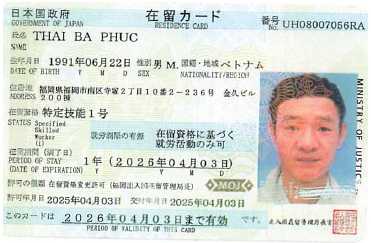 日本国政府 在留カード 番号 UH08007056RA
GOVERNMENT OF JAPAN RESIDENCE CARD
氏名 THAI BA PHUC
NAME
生年月日 1991年06月22日 性別 男 M. 国籍・地域 ベトナム
DATE OF BIRTH Y M D SEX NATIONALITY/REGION
住居地 福岡県福岡市南区寺塚2丁目10番2-236号 金久ビル
ADDRESS 200棟
在留資格 特定技能1号
STATUS Specified
Skilled
Worker
(i)
就労制限の有無 在留資格に基づく
就労活動のみ可
在留期間(満了日) 1年(2026年04月03日)
PERIOD OF STAY
(DATE OF EXPIRATION) Y M D
許可の種類 在留資格変更許可(福岡出入国在留管理局長)
MOJ
許可年月日 2025年04月03日 交付年月日 2025年04月03日
このカードは 2026年04月03日まで有効 です。
PERIOD OF VALIDITY OF THIS CARD
MINISTRY OF JUSTICE